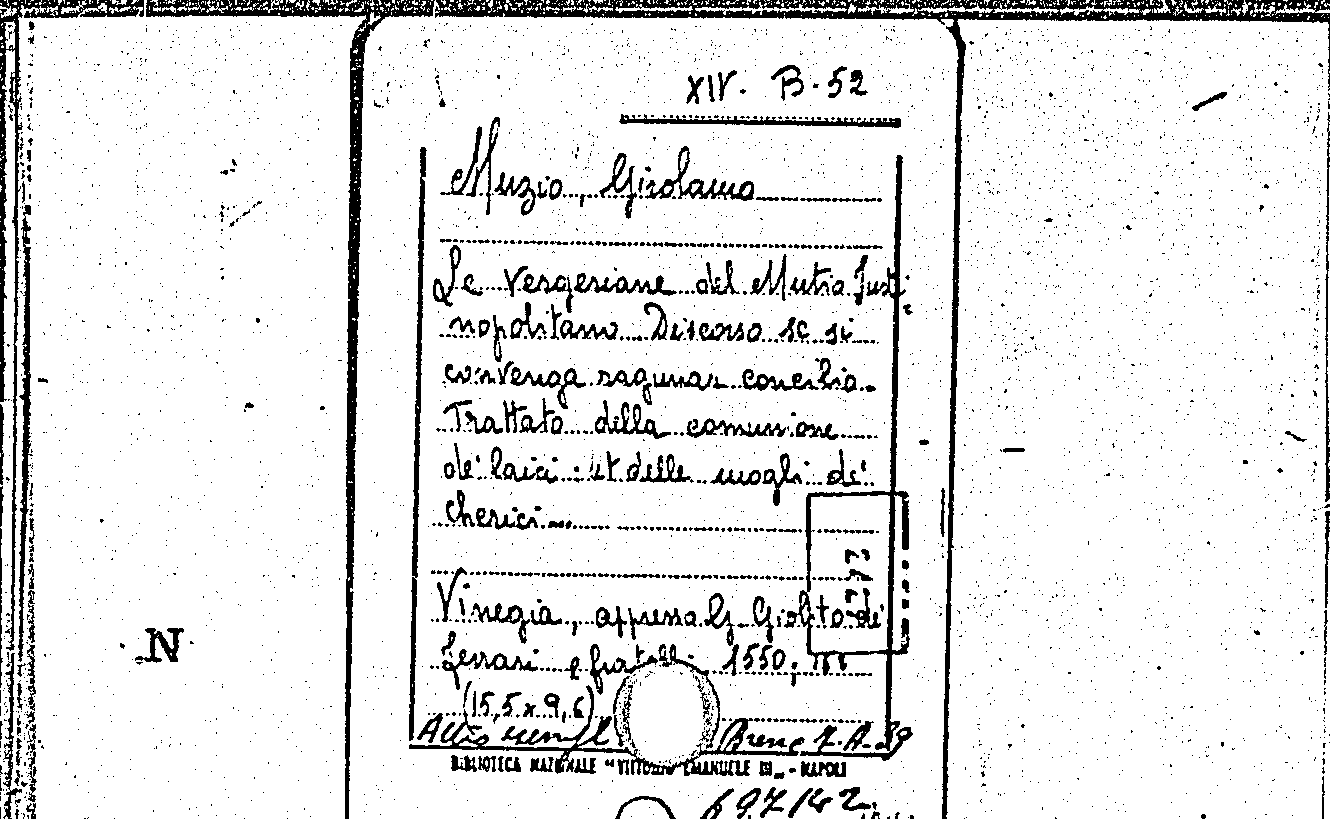 XIV. B. 52
Muzio, Girolamo
Le Vergeriane del Mutio Justi-
nopolitano. Discorso se si
convenga ragunar concilio.
Trattato della comunione
de' laici: et delle mogli de'
cherici...
Vinegia, appresso G. Giolito de'
Ferrari e fratelli. 1550,
(15,5 x 9,6)
Altro
BIBLIOTECA NAZIONALE "VITTORIO EMANUELE III" - NAPOLI
697142
N